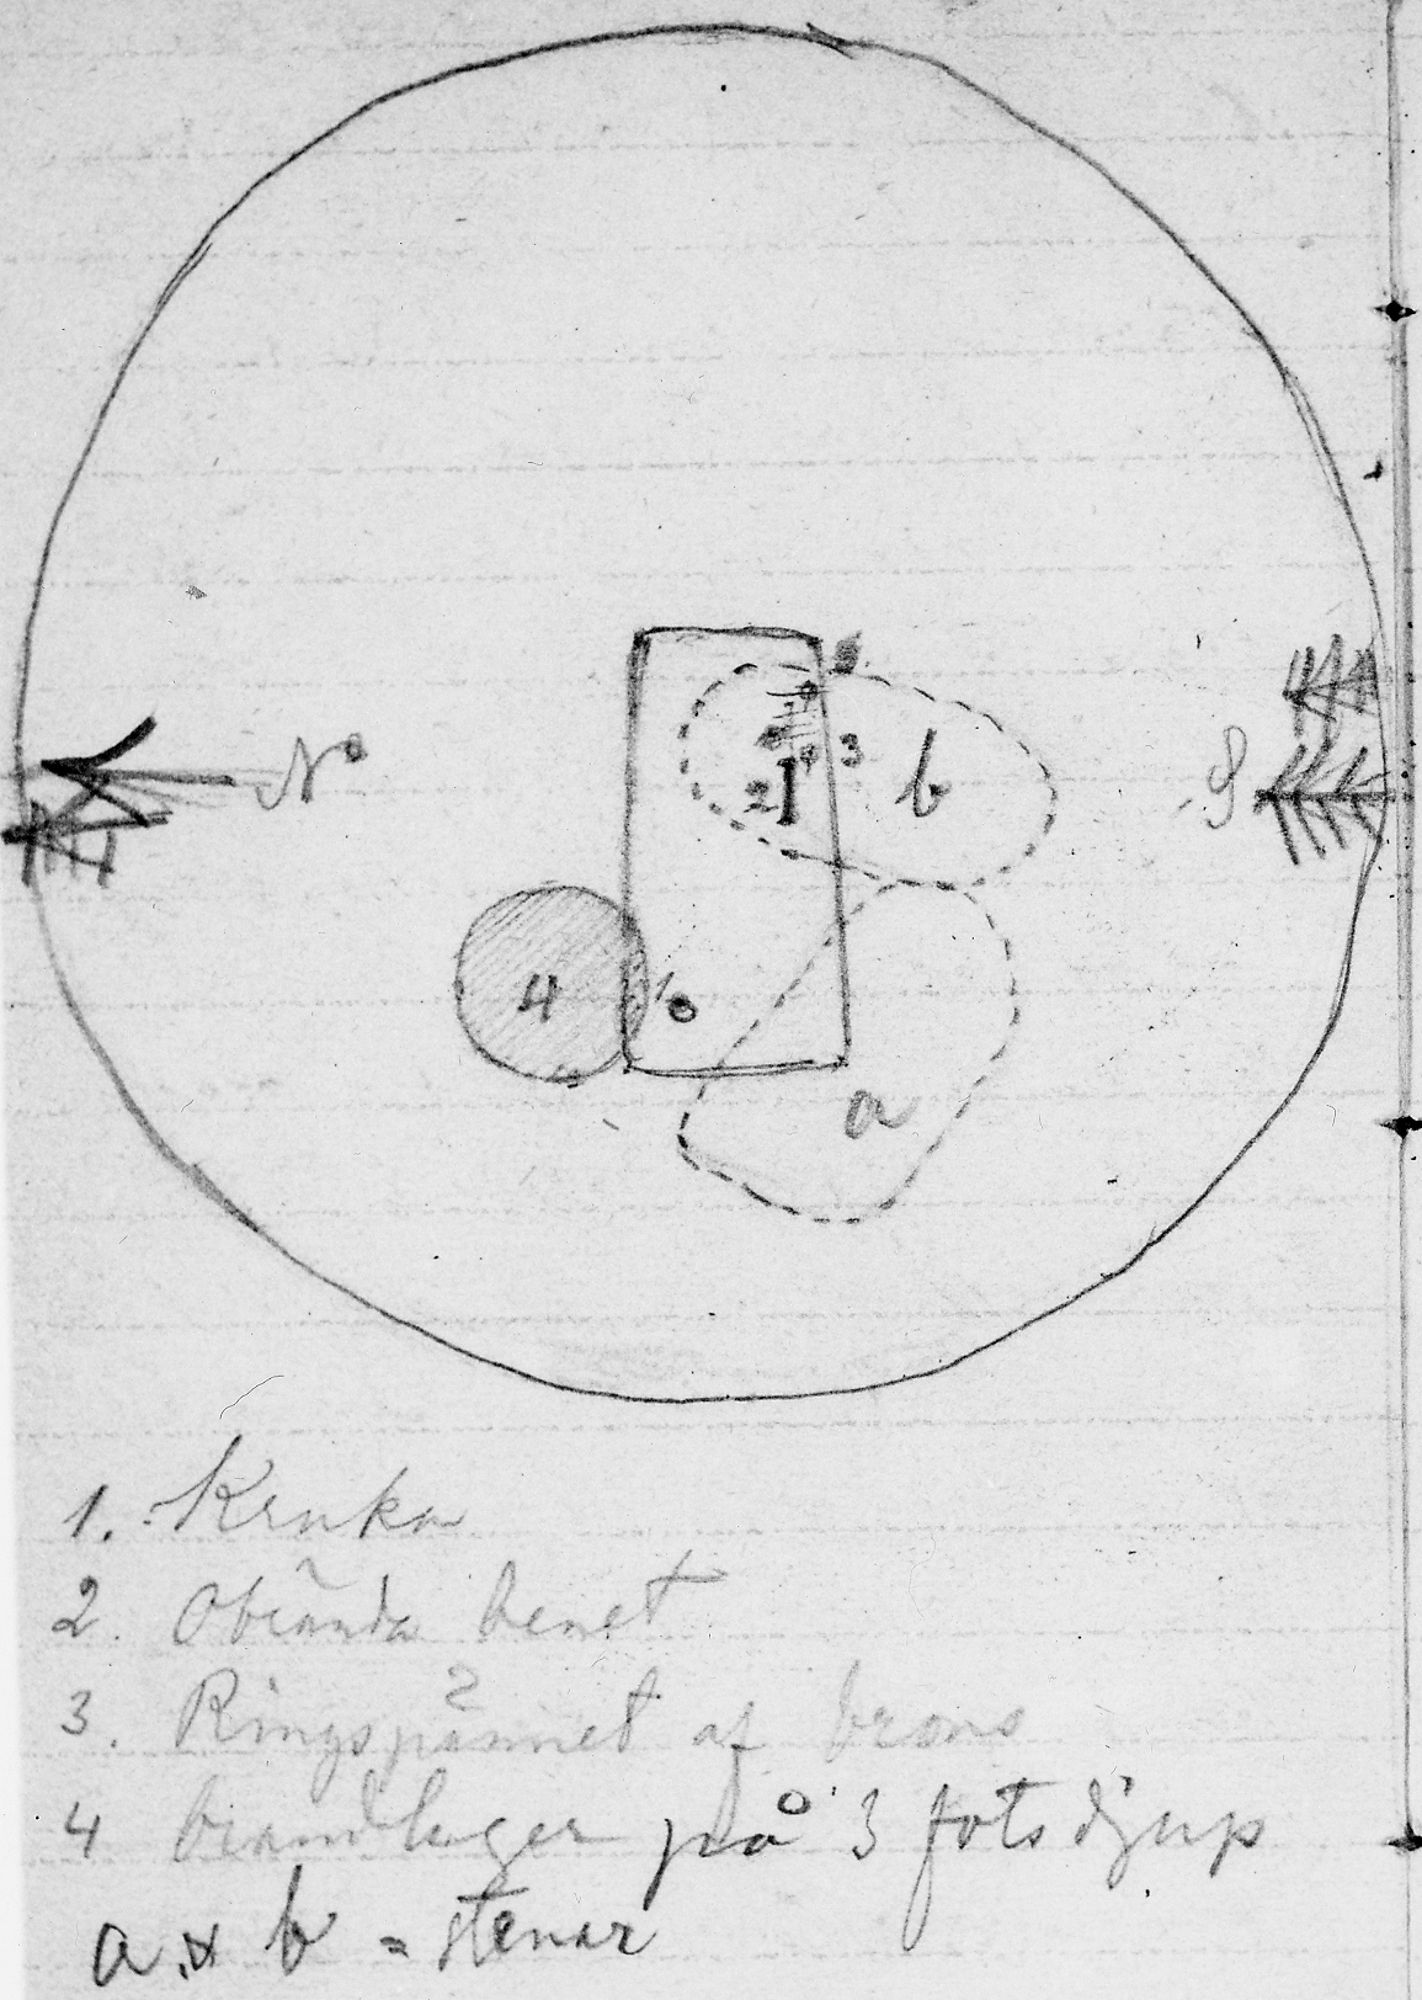 N
S
2
3
b
4
1
a
1. Kruka
2. Obrända benet
3. Ringspännet af brons
4 brandlager på 3 fots djup
a & b = stenar